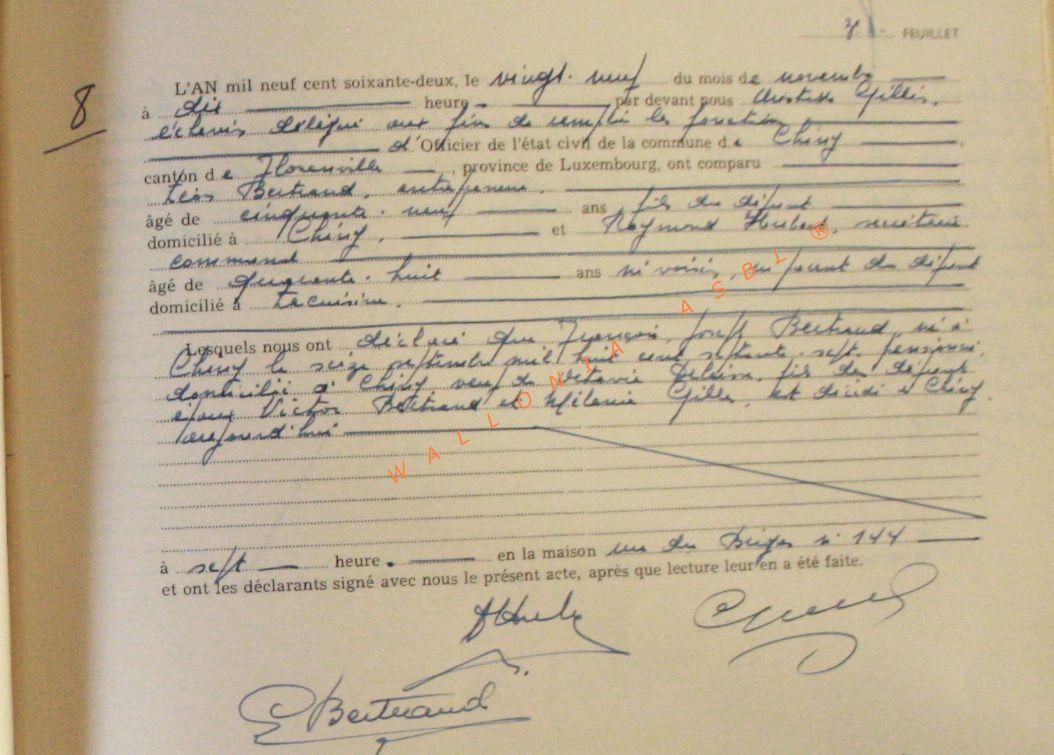 FEUILLET
8
L'AN mil neuf cent soixante-deux, le vingt-neuf du mois de novembre
à dix heure par devant nous Gillis,
échevin délégué aux fins de remplir les fonctions
d'Officier de l'état civil de la commune de Chiny
canton de Florenville, province de Luxembourg, ont comparu
Léon Bertrand, entrepreneur,
âgé de cinquante-neuf ans fils du défunt
domicilié à Chiny, et Raymond Hubert, secrétaire
communal
âgé de quarante-huit ans ni voisin, ni parent du défunt
domicilié à Lacuisine.
Lesquels nous ont déclaré que François, Joseph Bertrand, né à
Chiny le seize septembre mil huit cent septante-sept, pensionné,
domicilié à Chiny veuf de Octavie fils des défunts
époux Victor Bertrand et Mélanie Gilles, est décédé à Chiny
aujourd'hui
à sept heure. en la maison rue du n° 144
et ont les déclarants signé avec nous le présent acte, après que lecture leur en a été faite.
Bertrand
WALLONIA ASBL ®